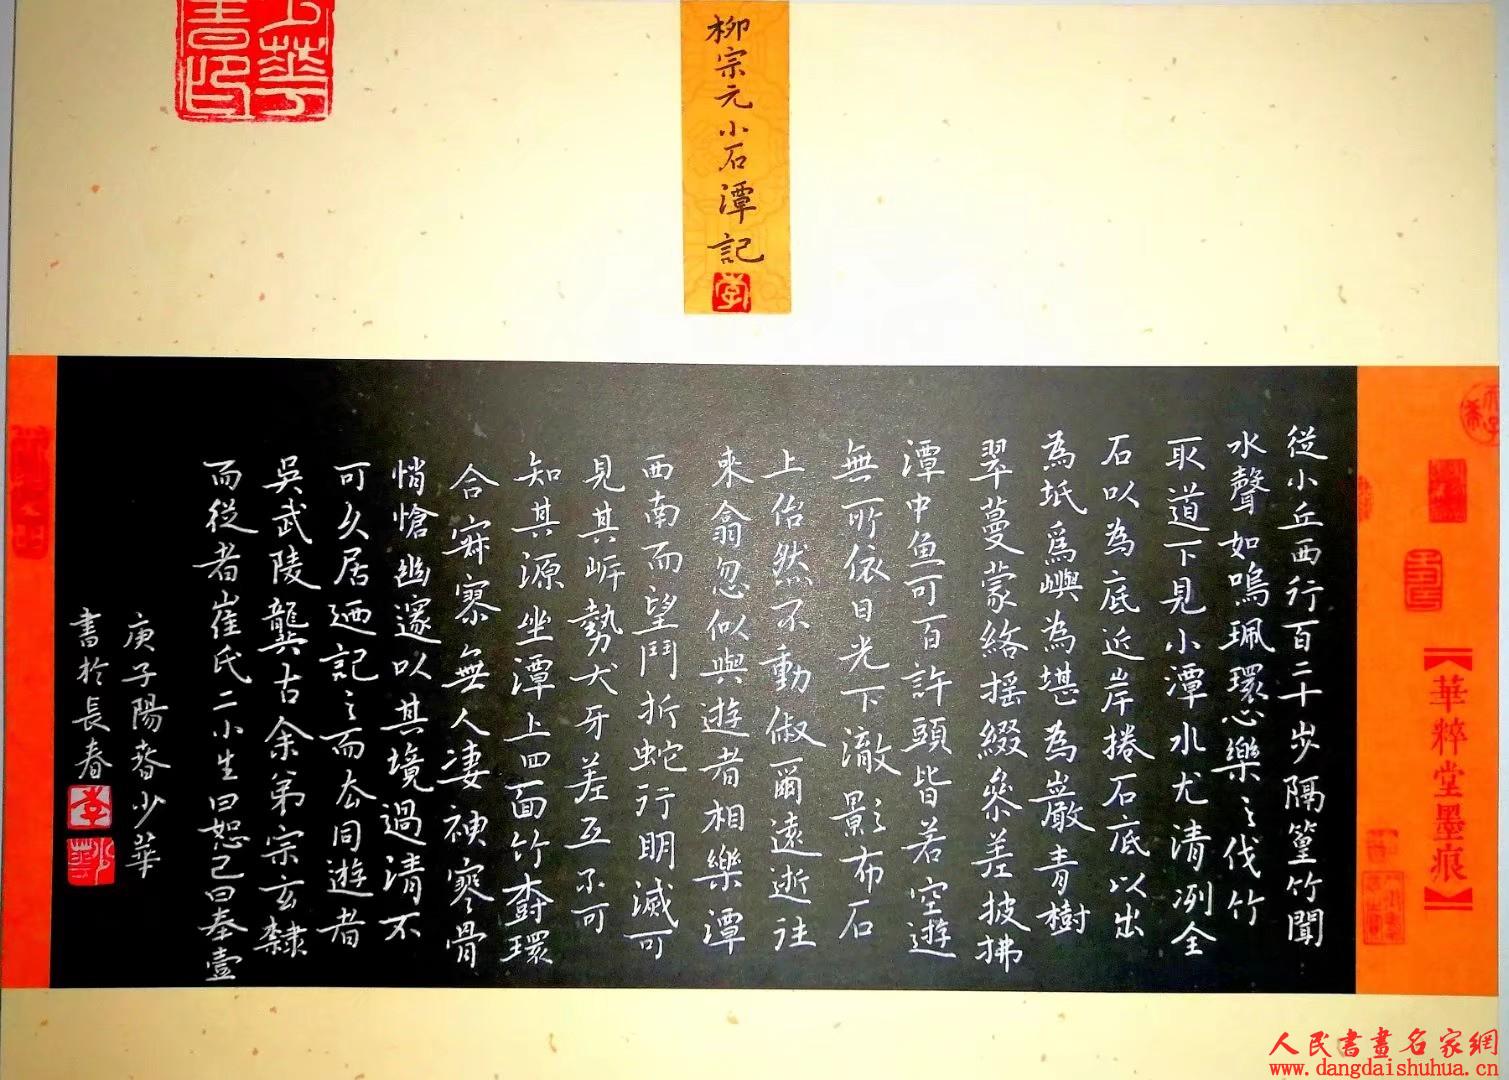 柳宗元小石潭記
從小丘西行百二十步隔篁竹聞
水聲如鳴珮環心樂之伐竹
取道下見小潭水尤清冽全
石以為底近岸捲石底以出
為坻為嶼為堪為巖青樹
翠蔓蒙絡搖綴參差披拂
潭中魚可百許頭皆若空遊
無所依日光下澈影布石
上佁然不動俶爾遠逝往
來翕忽似與遊者相樂潭
西南而望鬥折蛇行明滅可
見其岸勢犬牙差互不可
知其源坐潭上四面竹樹環
合寂寥無人凄神寒骨
悄愴幽邃以其境過清不
可久居迺記之而去同遊者
吳武陵龔古余弟宗玄隸
而從者崔氏二小生曰恕己曰奉壹
庚子陽春少華
書於長春
【華粹堂墨痕】
人民書畫名家網
www.dangdaishuhua.cn